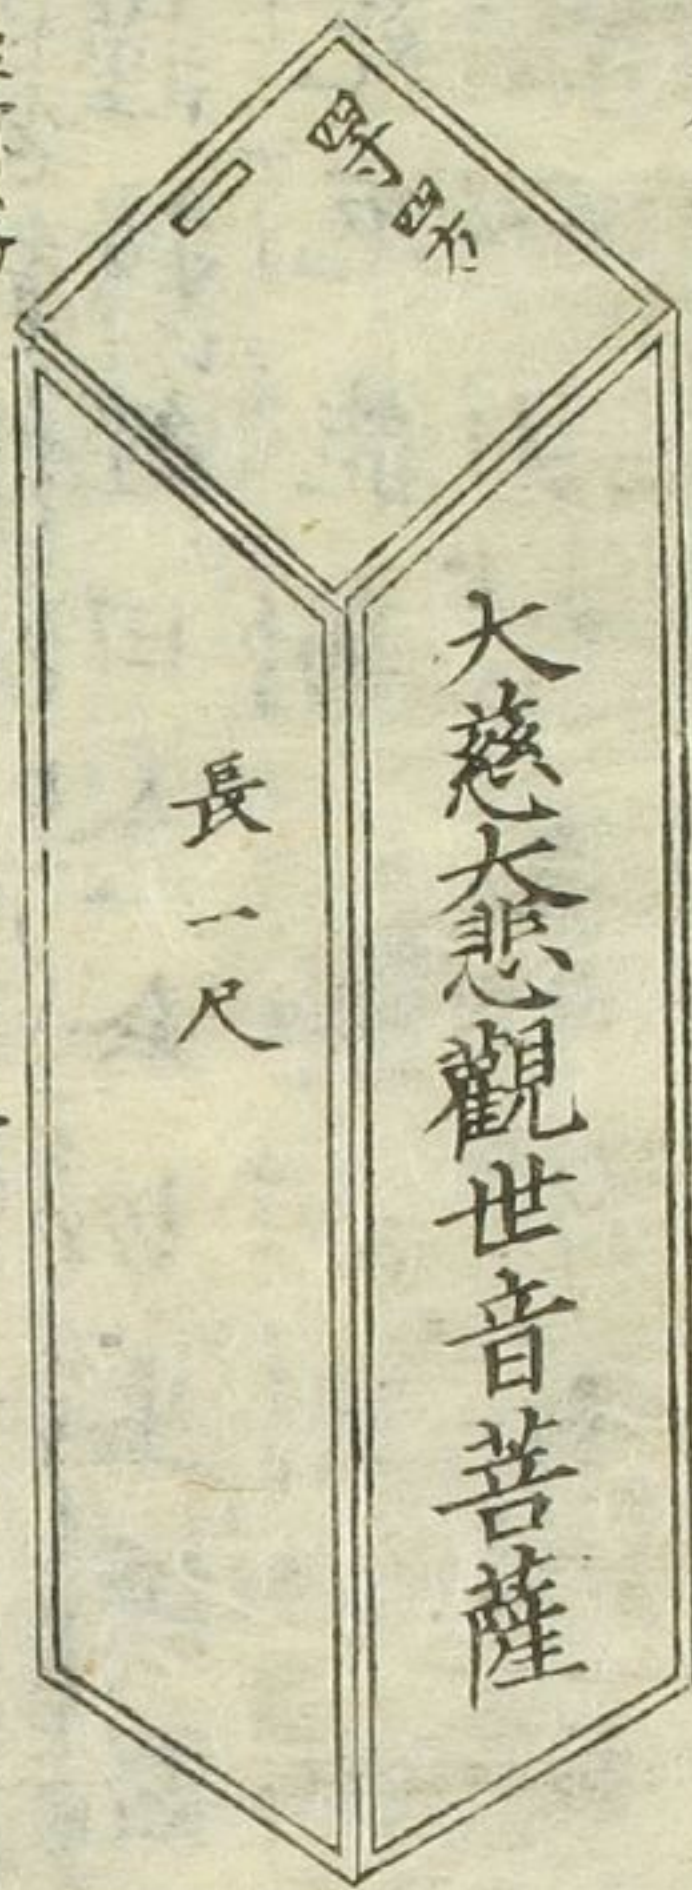 四寸四方
大慈大悲觀世音菩薩
長一尺